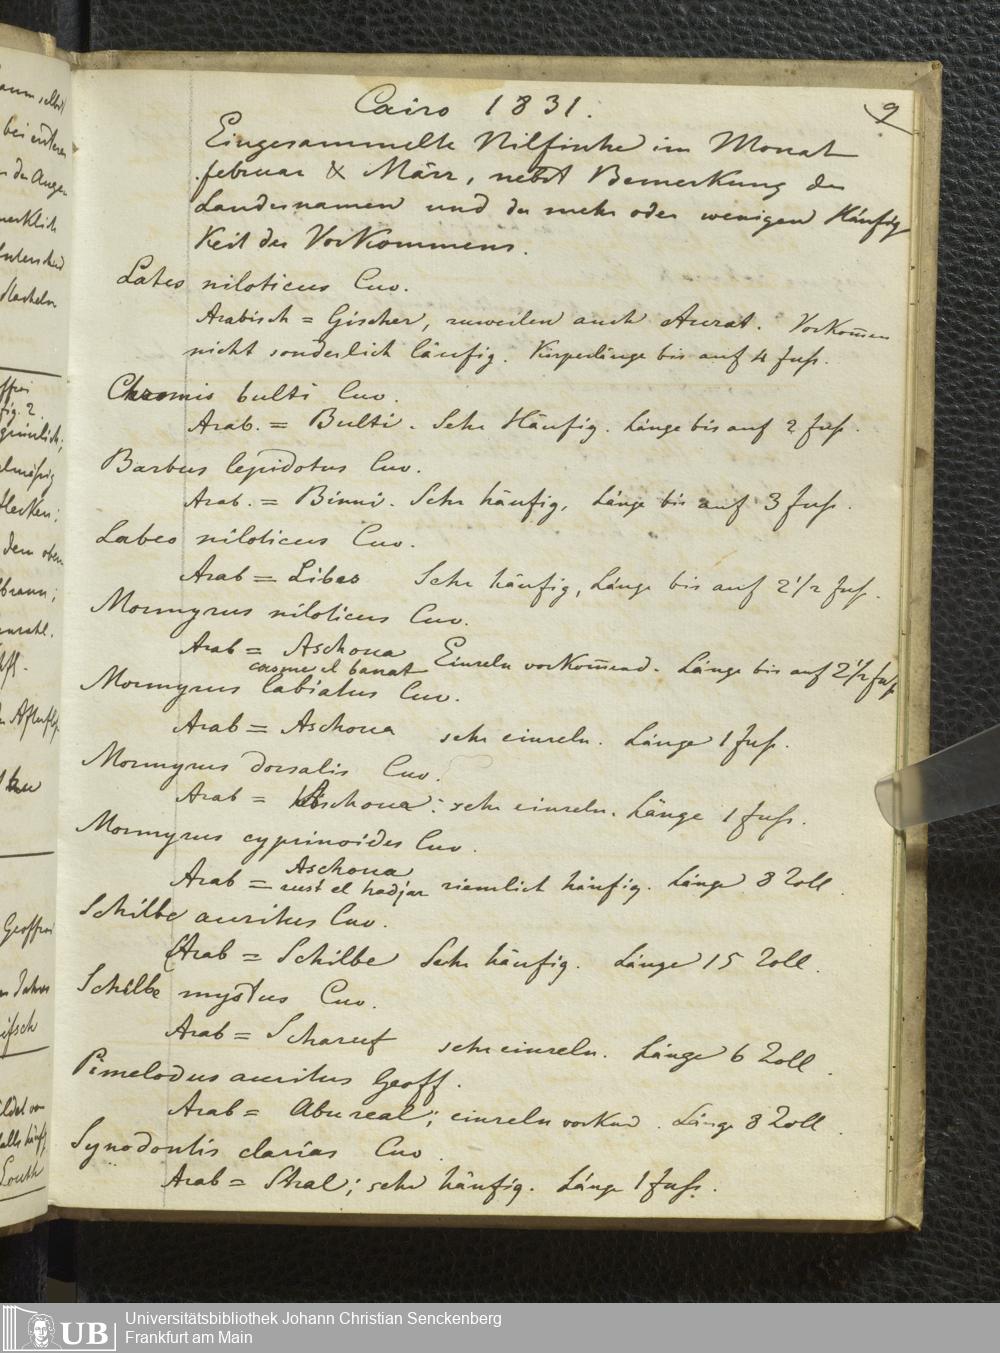 Cairo 1831.
9
Eingesammelte Nilfische im Monat
februar & März, nebst Bemerkung der
Landesnamen und der mehr oder wenigen Häufig
keit des Vorkommens.
Lates niloticus Cuv.
Arabisch = Gischer, zuweilen auch Aurat. Vorkom̄en
nicht sonderlich häufig. Körperlänge bis auf 4 fuß.
Chromis bulti Cuv.
Arab. = Bulti. Sehr Häufig. Länge bis auf 2 fuß.
Barbus lepidotus Cuv.
Arab. = Binni. Sehr häufig, Länge bis auf 3 fuß.
Labeo niloticus Cuv.
Arab = Libes Sehr häufig, Länge bis auf 2 1/2 fuß.
Mormyrus niloticus Cuv.
Arab = Aschoua Einzeln vorkom̄end. Länge bis auf 2 1/2 fuß
el banat
Mormyrus labiatus Cuv.
Arab = Aschoua sehr einzeln. Länge 1 fuß.
Mormyrus dorsalis Cuv.
Arab = Aschoua: sehr einzeln. Länge 1 fuß.
Mormyrus cyprinoides Cuv.
Aschoua
Arab = el hadjar ziemlich häufig. Länge 8 Zoll.
Schilbe auritus Cuv.
Arab = Schilbe Sehr häufig. Länge 15 Zoll.
Schilbe mystus Cuv.
Arab = Scharuf sehr einzeln. Länge 6 Zoll.
Pimelodus auritus Geoff.
Arab = Abu real; einzeln vorkmd. Länge 8 Zoll.
Synodontis clarias Cuv.
Arab = Schal; sehr häufig. Länge 1 fuß.
Universitätsbibliothek Johann Christian Senckenberg
Frankfurt am Main
UB